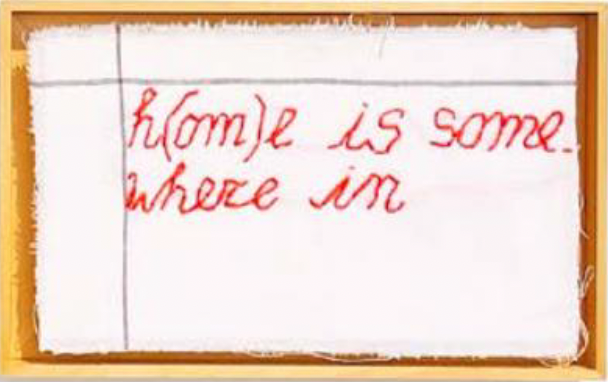 h(om)e is some-
where in